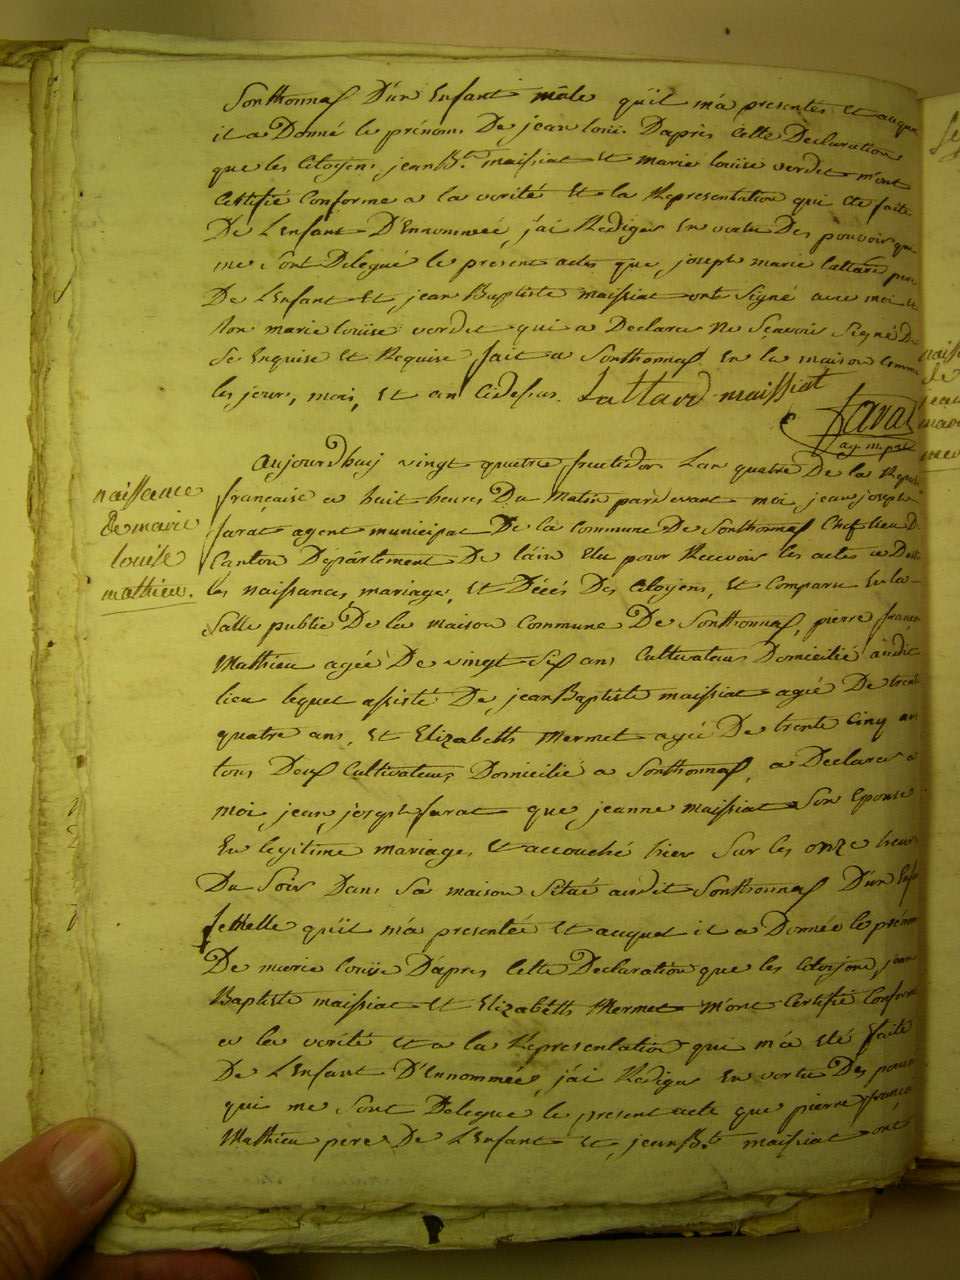 Sonthonnaf D'un Enfant mâle qu'il m'a presentés et auquel
il a Donné le prénoms De jean louis D'après Cette Declaration
que les Citoyens, jean Bte maissiat et marie louïse verdet m'ont
Certifié Conforme a la verité et la Représentation qui été faite
De L'enfant D'Ennommée, j'ai Rediges En vertu Des pouvoirs que
me sont Delegué le présent actes que, joseph marie lattard pere
De L'Enfant Et jean Baptiste maissiat onts signé avec moi et
non marie louïse verdet qui a Declarer Ne Sçavoir signé De
Se Enquise et Requise fait a Sonthonnaf En la maison Comm
les jour, mois, Et an Cidessus. Lattard maissiat
Savarat
ag mpal
Aujourd'huy vingt quatre fructidor L'an quatre De la Repub
française a huit heures Du Matin pardevant moi jean joseph
furat agent municipal De la Commune De Sonthonnaf Cheflieu D
Canton Département De l'ain Elu pour Recevoir les actes a Desti
les naissances, mariages, et Décés Des Citoyens, Et Comparu En la
Salle public De la maison Commune De Sonthonnaf, pierre françoi
Mathieu agée De vingt Sef ans Cultivateurs Domicilié audit
lieu lequel assisté De, jean Baptiste maissiat agée De trente
quatre ans, Et Elizabeth Mermet agée De trente Cinq ans
tous Deuf Cultivateurs Domicilié a Sonthonnaf, a Declarer a
moi, jean, joseph furat que jeanne maissiat Son Epouse
En legitime mariage, Et accouché hier Sur les onze heures
Du Soir Dans Sa maison Sitüé audit Sonthonnaf D'un Enfa
femelle qu'il m'a presentée et auquel il a Donnée le prénom
De marie louïse D'apres Cette Declaration que les Citoyens, jean
Baptiste maissiat Et Elizabeth Mermet m'ont Certifié Conforme
a la verité et a la Représentation qui m'a été faite
De L'Enfant D'Ennommée, j'ai Rediger En vertu Des pouvo
qui me Sont Delegué le present acte que pierre françoi
Mathieu pere De L'Enfant Et, jean Bte maissiat ont
naissance
de marie
louise
mathieu.